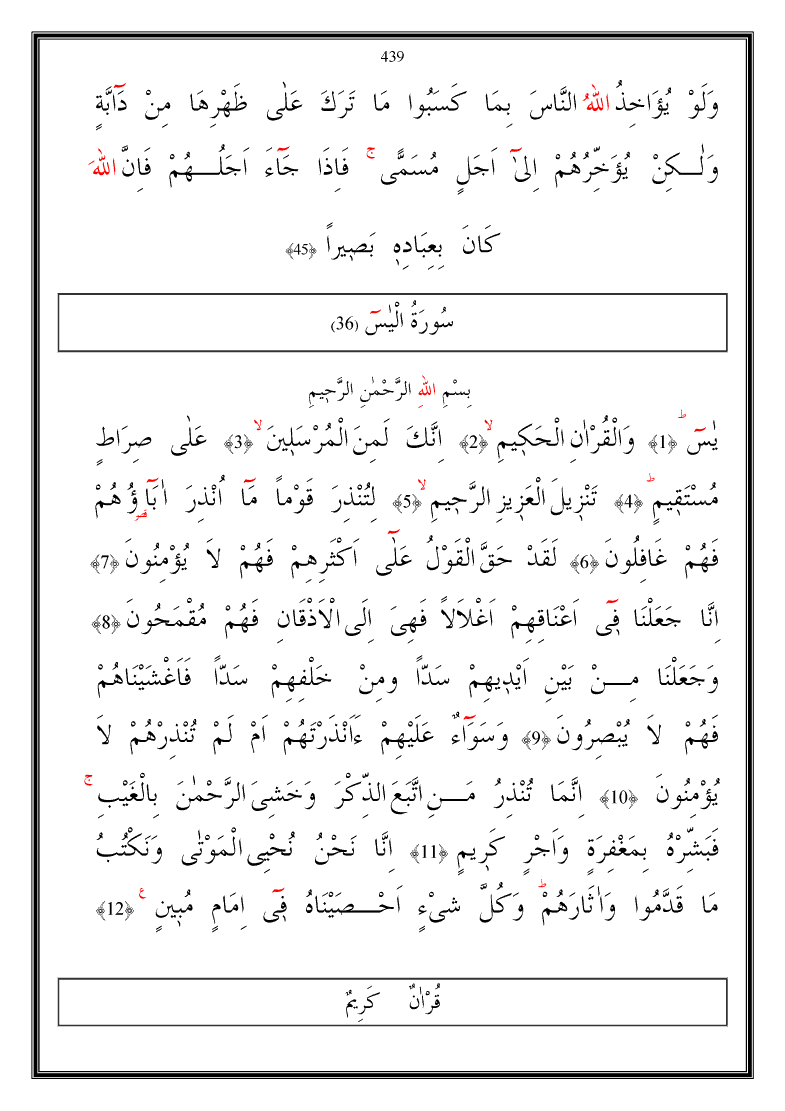 439
وَلَوْ يُؤَاخِذُ اللّٰهُ النَّاسَ بِمَا كَسَبُوا مَا تَرَكَ عَلٰى ظَهْرِهَا مِنْ دَٓابَّةٍ
وَلٰـكِنْ يُؤَخِّرُهُمْ اِلٰٓى اَجَلٍ مُسَمًّى ۚ فَاِذَا جَٓاءَ اَجَلُـهُمْ فَاِنَّ اللّٰهَ
كَانَ بِعِبَادِه۪ بَص۪يراً ﴿45﴾
سُورَةُ الْيٰسٓ (36)
بِسْمِ اللّٰهِ الرَّحْمٰنِ الرَّح۪يمِ
يٰسٓ ۜ ﴿1﴾ وَالْقُرْاٰنِ الْحَك۪يمِ ۙ ﴿2﴾ اِنَّكَ لَمِنَ الْمُرْسَل۪ينَ ۙ ﴿3﴾ عَلٰى صِرَاطٍ
مُسْتَق۪يمٍ ۜ ﴿4﴾ تَنْز۪يلَ الْعَز۪يزِ الرَّح۪يمِ ۙ ﴿5﴾ لِتُنْذِرَ قَوْماً مَٓا اُنْذِرَ اٰبَٓاؤُ۬هُمْ
فَهُمْ غَافِلُونَ ﴿6﴾ لَقَدْ حَقَّ الْقَوْلُ عَلٰٓى اَكْثَرِهِمْ فَهُمْ لاَ يُؤْمِنُونَ ﴿7﴾
اِنَّا جَعَلْنَا ف۪ٓى اَعْنَاقِهِمْ اَغْلاَلاً فَهِىَ اِلَى الْاَذْقَانِ فَهُمْ مُقْمَحُونَ ﴿8﴾
وَجَعَلْنَا مِـنْ بَيْنِ اَيْد۪يهِمْ سَدّاً ومِنْ خَلْفِهِمْ سَدّاً فَاَغْشَيْنَاهُمْ
فَهُمْ لاَ يُبْصِرُونَ ﴿9﴾ وَسَوَٓاءٌ عَلَيْهِمْ ءَاَنْذَرْتَهُمْ اَمْ لَمْ تُنْذِرْهُمْ لاَ
يُؤْمِنُونَ ﴿10﴾ اِنَّمَا تُنْذِرُ مَـنِ اتَّبَعَ الذِّكْرَ وَخَشِىَ الرَّحْمٰنَ بِالْغَيْبِ ۚ
فَبَشِّرْهُ بِمَغْفِرَةٍ وَاَجْرٍ كَر۪يمٍ ﴿11﴾ اِنَّا نَحْنُ نُحْيِى الْمَوْتٰى وَنَكْتُبُ
مَا قَدَّمُوا وَاٰثَارَهُمْ ۜ وَكُلَّ شىْءٍ اَحْـصَيْنَاهُ ف۪ٓى اِمَامٍ مُب۪ينٍ ع ﴿12﴾
قُرْاٰنٌ كَرِيمٌ